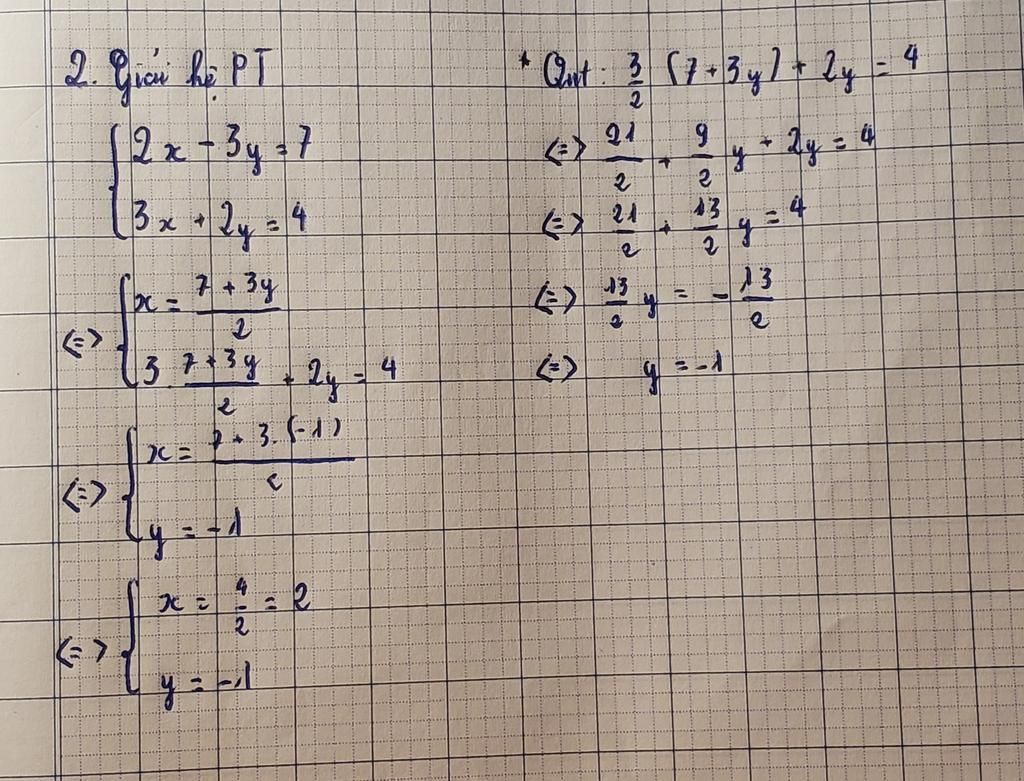 2. Giải hệ PT
{ 2x - 3y = 7
3x + 2y = 4
<=> { x = (7 + 3y)/2
3 . (7 + 3y)/2 + 2y = 4
<=> { x = (7 + 3.(-1))/2
y = -1
<=> { x = 4/2 = 2
y = -1
* : 3/2 (7 + 3y) + 2y = 4
<=> 21/2 + 9/2 y + 2y = 4
<=> 21/2 + 13/2 y = 4
<=> 13/2 y = - 13/2
<=> y = -1